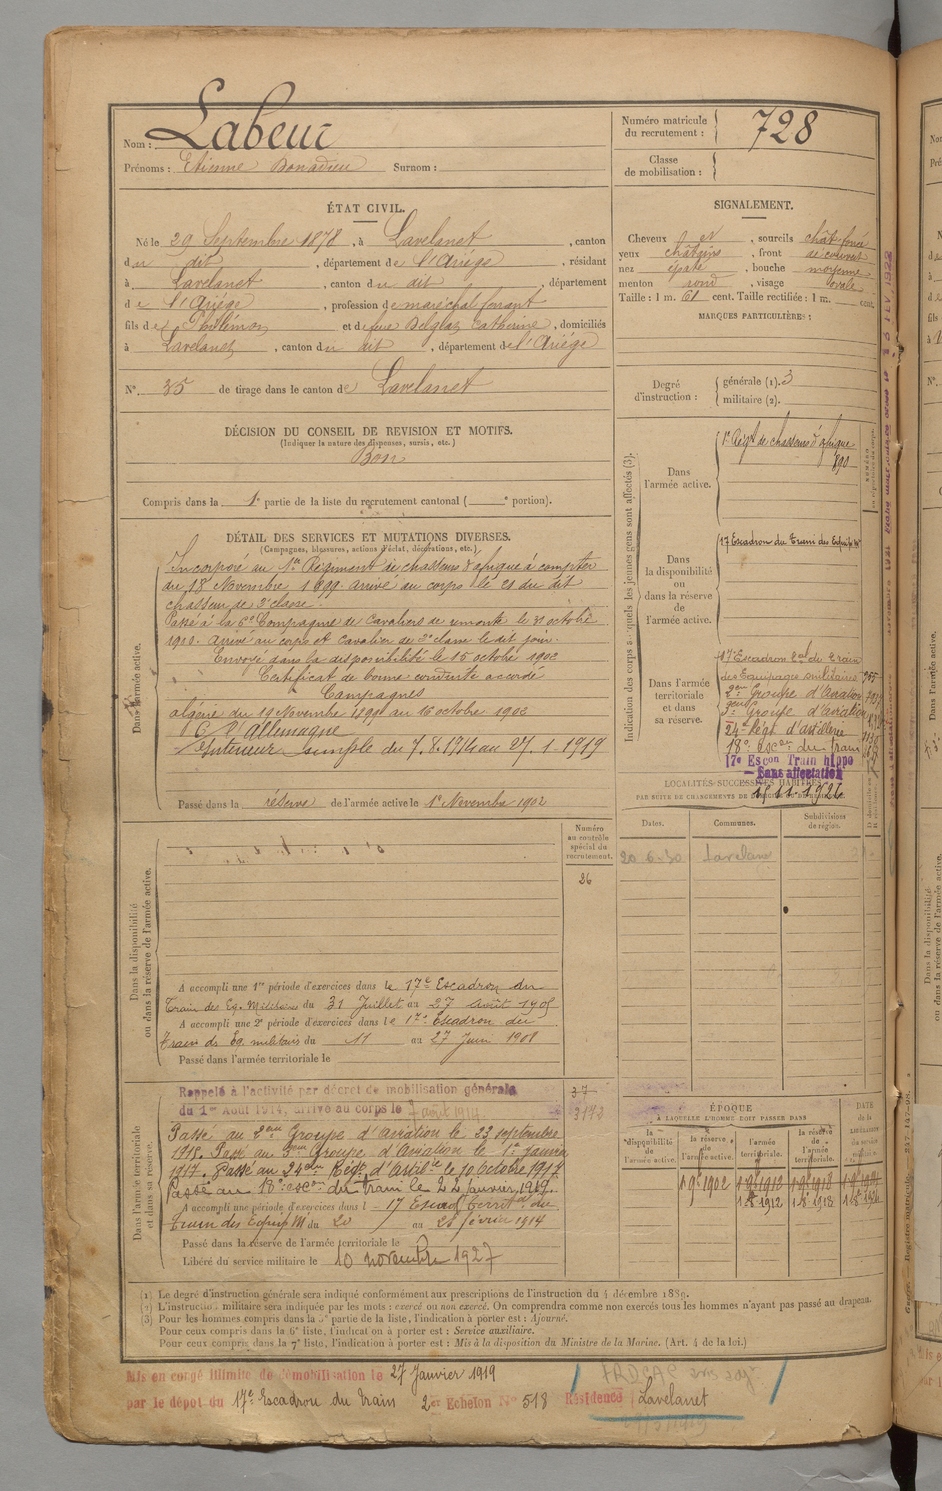 Nom : Labeur
Prénoms : Etienne Bonadieu Surnom :
Numéro matricule du recrutement : 728
Classe de mobilisation :
ÉTAT CIVIL.
Né le 29 Septembre 1878, à Lavelanet, canton
du dit, département de l'Ariège, résidant
à Lavelanet, canton du dit, département
de l'Ariège, profession de maréchal ferrant
fils de Philémon et de feue Catherine, domiciliés
à Lavelanet, canton du dit, département de l'Ariège
N° 35 de tirage dans le canton de Lavelanet
SIGNALEMENT.
Cheveux et, sourcils chât. foncé
yeux châtains, front découvert
nez épaté, bouche moyenne
menton rond, visage ovale
Taille : 1 m. 61 cent. Taille rectifiée : 1 m. cent.
MARQUES PARTICULIÈRES :
Degré d'instruction : générale (1). 3
militaire (2).
DÉCISION DU CONSEIL DE REVISION ET MOTIFS.
(Indiquer la nature des dispenses, sursis, etc.)
Bon
Compris dans la 1e partie de la liste du recrutement cantonal ( e portion).
DÉTAIL DES SERVICES ET MUTATIONS DIVERSES.
(Campagnes, blessures, actions d'éclat, décorations, etc.)
Dans l'armée active.
Incorporé au 1er Régiment de chasseurs d'afrique à compter
du 18 Novembre 1899. arrivé au corps le 21 du dit
chasseur de 2e classe.
Passé à la 6e Compagnie de Cavaliers de remonte le 31 octobre
arrivé au corps et cavalier de 2e classe le dit jour.
Envoyé dans la disponibilité le 15 octobre 1902
Certificat de bonne conduite accordé
Campagnes
algérie du 19 Novembre 1899 au 16 octobre 1902
C l'allemagne
Intérieur simple du 7.8.1914 au 27.1.1919
Passé dans la réserve de l'armée active le 1er Novembre 1902
Indication des corps auxquels les jeunes gens sont affectés (3).
Dans l'armée active.
1er Régt de chasseurs d'afrique
890
Dans la disponibilité ou dans la réserve de l'armée active.
17 Escadron du Train des Equip. Mres
Dans l'armée territoriale et dans sa réserve.
17e Escadron Tal du Train
des Equipages militaires
2eme Groupe d'Aviation
3e Groupe d'aviation
24e Régt. d'artillerie
18e Escon du train
17e Escon Train hippo
Sans affectation
15.11.1926
LOCALITÉS SUCCESSIVES HABITÉES
PAR SUITE DE CHANGEMENTS DE DOMICILE OU DE RÉSIDENCE.
Dates. Communes. Subdivisions de région.
20.6.30 Lavelanet
Numéro au contrôle spécial du recrutement.
26
Dans la disponibilité ou dans la réserve de l'armée active.
A accompli une 1re période d'exercices dans le 17e Escadron du
Train des Eq. Militaires du 31 Juillet au 27 Août 1905
A accompli une 2e période d'exercices dans le 17e Escadron du
Train ds Eq. militairs du 11 au 27 Juin 1908
Passé dans l'armée territoriale le
Dans l'armée territoriale et dans sa réserve.
Rappelé à l'activité par décret de mobilisation générale
du 1er Août 1914, arrivé au corps le 7 août 1914.
37
3172
Passé au 2eme Groupe d'aviation le 23 septembre
1915. Passé au 3eme Groupe d'Aviation le 1er janvier
1917. Passé au 24eme Régt d'Artillie le 10 octobre 1917
Passé au 18e escon du train le 22 Janvier 1919.
A accompli une période d'exercices dans l 17 Escad Territal du
Train des Equip M du 20 au 28 février 1914
Passé dans la réserve de l'armée territoriale le
Libéré du service militaire le 10 novembre 1927
ÉPOQUE
A LAQUELLE L'HOMME DOIT PASSER DANS
la disponibilité de l'armée active.
la réserve de l'armée active.
l'armée territoriale.
la réserve de l'armée territoriale.
DATE de la LIBÉRATION du service militaire.
1 9e 1902
1 8e 1912
1 8e 1918
(1) Le degré d'instruction générale sera indiqué conformément aux prescriptions de l'instruction du 4 décembre 1889.
(2) L'instruction militaire sera indiquée par les mots : exercé ou non exercé. On comprendra comme non exercés tous les hommes n'ayant pas passé au drapeau.
(3) Pour les hommes compris dans la 5e partie de la liste, l'indication à porter est : Ajourné.
Pour ceux compris dans la 6e liste, l'indication à porter est : Service auxiliaire.
Pour ceux compris dans la 7e liste, l'indication à porter est : Mis à la disposition du Ministre de la Marine. (Art. 4 de la loi.)
Mis en congé illimité de démobilisation le 27 Janvier 1919
par le dépôt du 17e Escadron du train 2er Echelon N° 518 Résidence Lavelanet